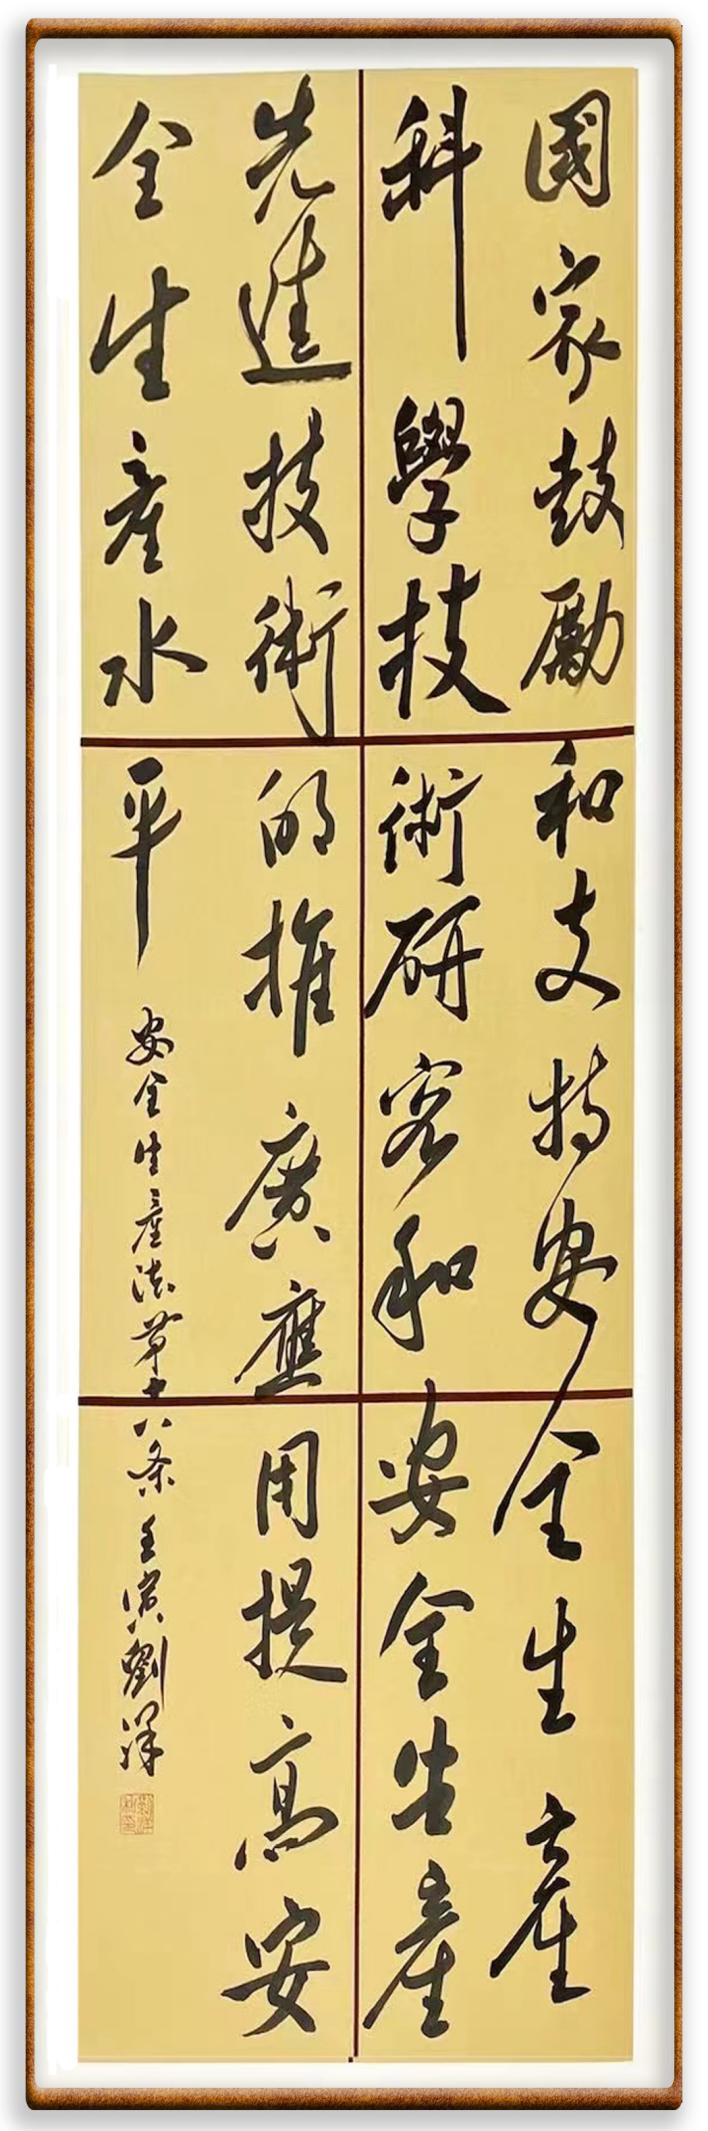 國家鼓勵和支持安全生産
科學技術研究和安全生産
先進技術的推廣應用提高安
全生産水平
安全生産法第十八条 壬寅劉洋